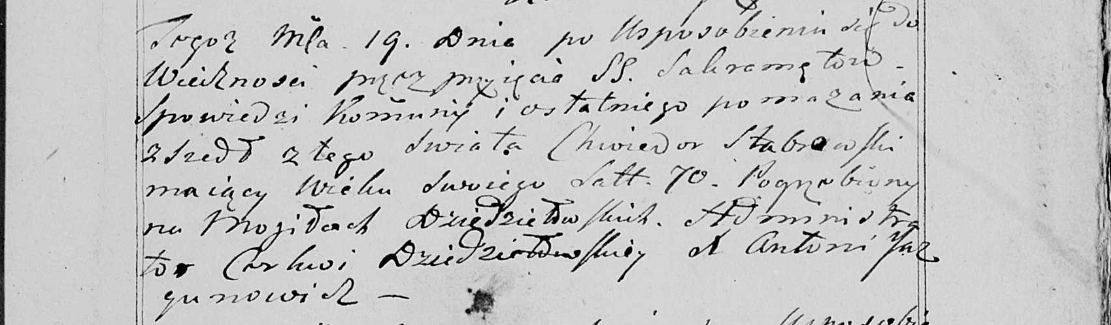 Tegoż Mca. 19. Dnia po Usposobieniu się do
Wieczności przez przyięcie SS. Sakramętow -
Spowiedzi Komunij i ostatniego pomazania
zszedł z tego swiata Chwiedor Stabrowski
maiący wieku swoiego Latt. 70. Pogrzebiony
na Mogiłach Dziedziełowskich. Administra
tor Cerkwi Dziedziełowskiey X Antoni Jaz
gunowicz —